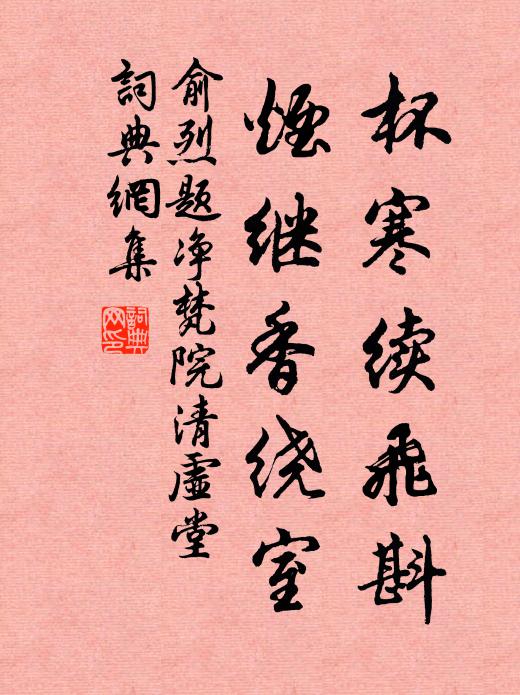 杯寒续飛斟
煙继香绕室
俞烈题净梵院清虛堂
詞典網集
詞典网印